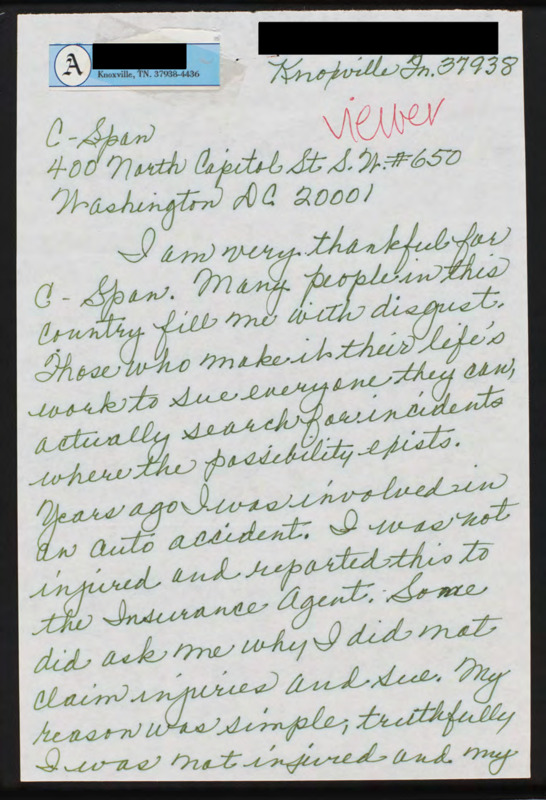 A
Knoxville, TN. 37938-4436
Knoxville Tn. 37938
viewer
C-Span
400 North Capitol St S.W. #650
Washington DC 20001
I am very thankful for
C-Span. Many people in this
country fill me with disgust.
Those who make it their life's
work to sue everyone they can,
actually search for incidents
where the possibility exists.
Years ago I was involved in
an auto accident. I was not
injured and reported this to
the Insurance Agent. Some
did ask me why I did not
claim injuries and sue. My
reason was simple, truthfully
I was not injured and my